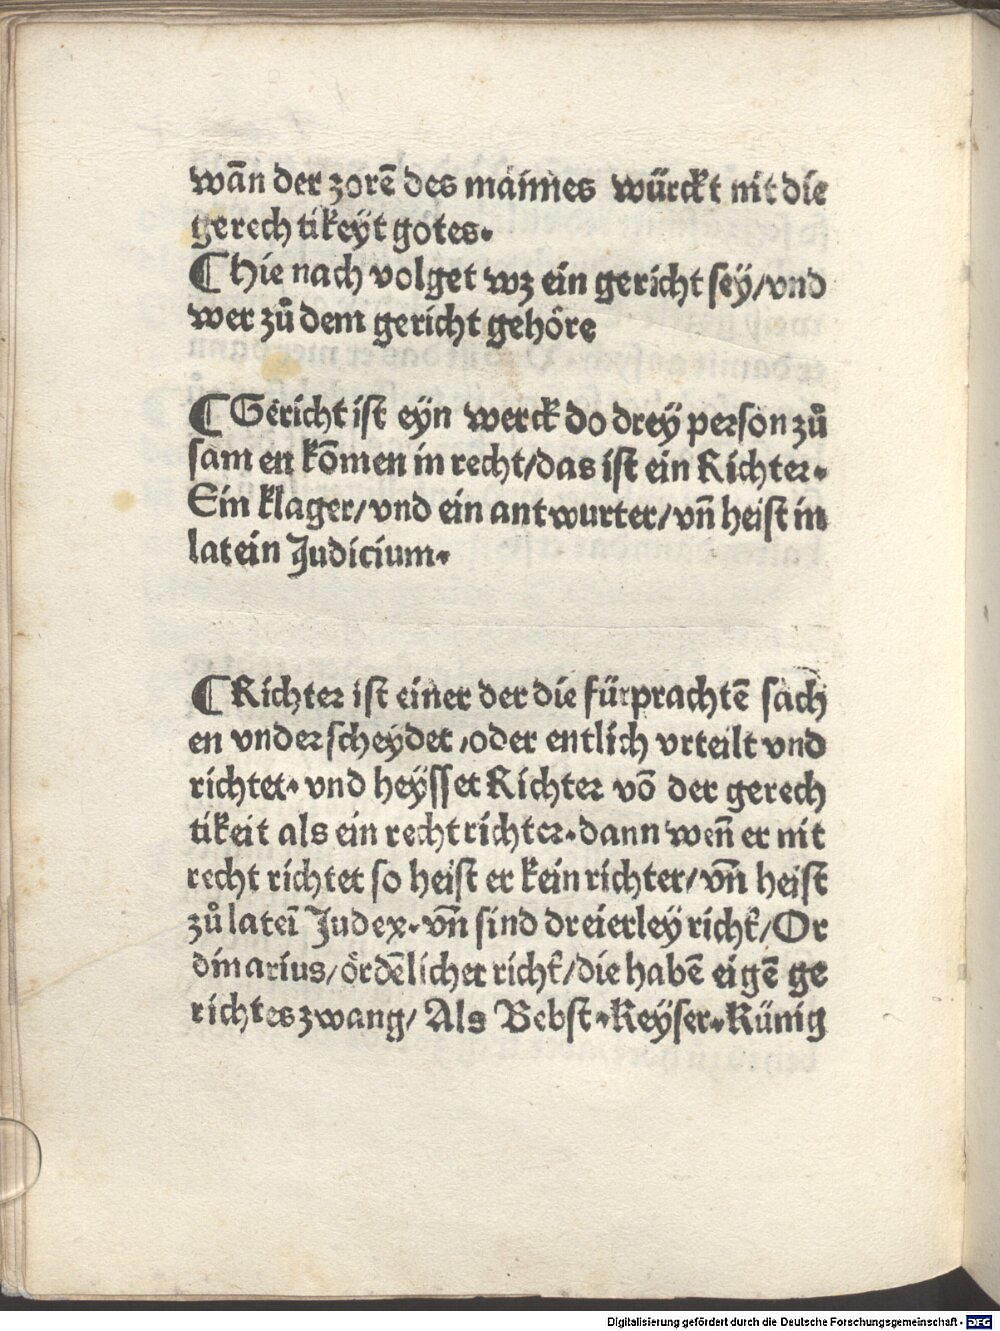 wān der zorē des mānnes würckt nit die
gerechtikeyt gotes.
¶ Hie nach volget wz ein gericht sey/vnd
wer zů dem gericht gehöre
¶ Gericht ist eyn werck do drey person zů
sam en kōmen in recht/das ist ein Richter.
Ein klager/vnd ein antwurter/vn̄ heist in
latein Judicium.
¶ Richter ist einer der die fürprachtē sach
en vnderscheydet/oder entlich vrteilt vnd
richtet. vnd heysset Richter vō der gerech
tikeit als ein recht richter.dann wen̄ er nit
recht richtet so heist er kein richter/vn̄ heist
zů lateī Judex.vn̄ sind dreierley richt̄/Or
dinarius/ördēlicher richt̄/die habē eigē ge
richtes zwang/Als Bebst.Keyser.Künig
Digitalisierung gefördert durch die Deutsche Forschungsgemeinschaft - DFG